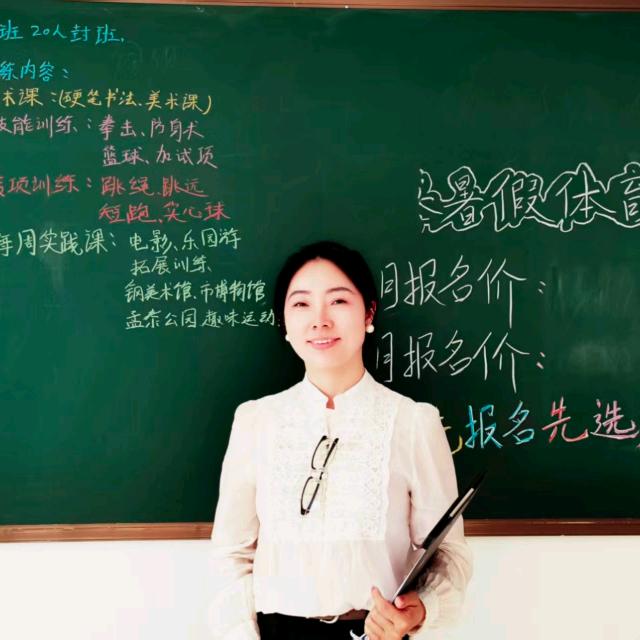 班20人封班.
练内容:
术课:(硬笔书法、美术课)
技能训练:拳击、防身术
篮球、加试项
项训练:跳绳、跳远
短跑、实心球
每周实践课:电影、乐园游
拓展训练
钢美术馆、市博物馆
孟泰公园趣味运动.
暑假体育
月报名价:
月报名价:
报名先选